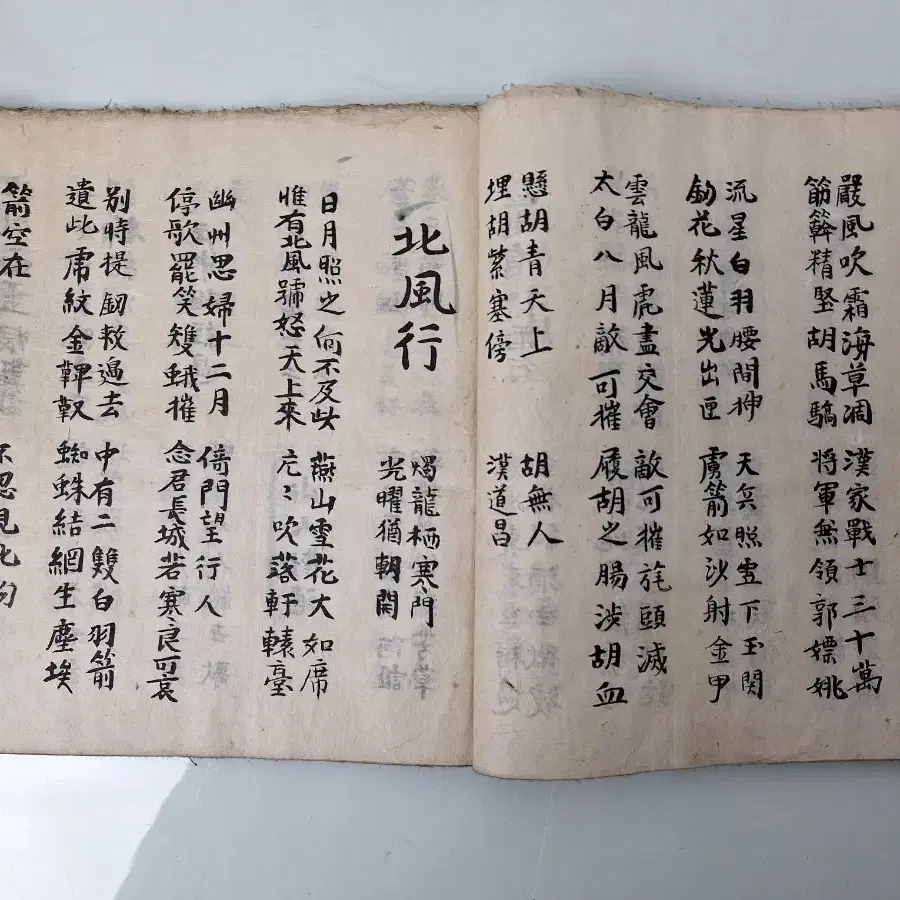 嚴風吹霜海草凋
筋簳精堅胡馬驕
漢家戰士三十萬
將軍無領郭嫖姚
流星白羽腰間挿
釰花秋蓮光出匣
天兵照雪下玉関
虜箭如沙射金甲
雲龍風虎盡交會
太白八月敵可摧
敵可摧旄頭滅
履胡之腸涉胡血
懸胡青天上
埋胡紫塞傍
胡無人
漢道昌
北風行
燭龍栖寒門
光曜猶朝開
日月照之何不及此
惟有北風號怒天上來
燕山雪花大如席
片〻吹落軒轅臺
幽州思婦十二月
停歌罷笑雙蛾摧
倚門望行人
念君長城苦寒良可哀
別時提釰救邊去
遺此虎紋金鞞靫
中有二雙白羽箭
蜘蛛結網生塵埃
箭空在
不忍見此勿